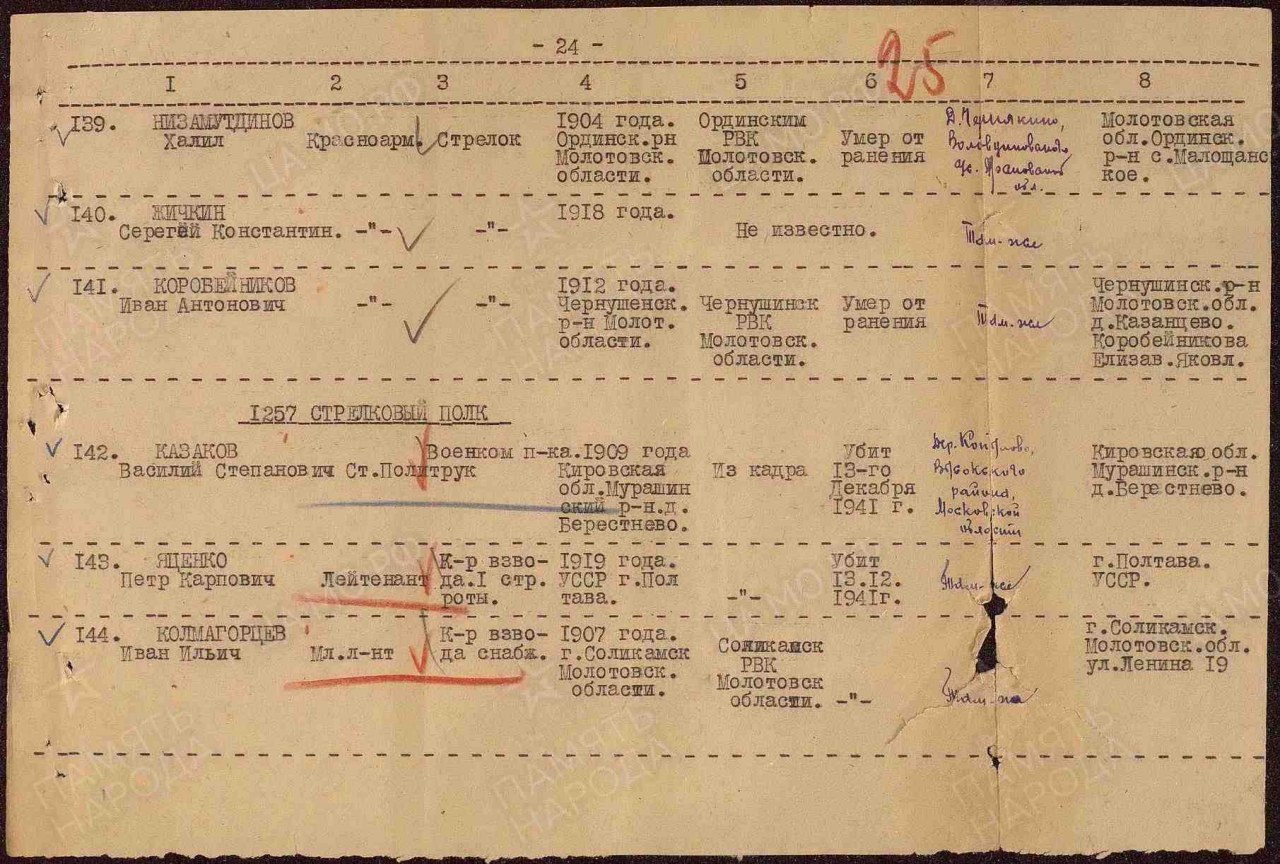 - 24 -
25
I 2 3 4 5 6 7 8
I39. НИЗАМУТДИНОВ
Халил
Красноарм.
Стрелок
I904 года.
Ординск.рн
Молотовск.
области.
Ординским
РВК
Молотовск.
области.
Умер от
ранения
Молотовская
обл.Ординск.
р-н с.Малощанс
кое.
I40. ЖИЧКИН
Сергей Константин.
-"-
-"-
I9I8 года.
Не известно.
Там-же
I4I. КОРОБЕЙНИКОВ
Иван Антонович
-"-
-"-
I9I2 года.
Чернушенск.
р-н Молот.
области.
Чернушинск
РВК
Молотовск.
области.
Умер от
ранения
Там-же
Чернушинск.р-н
Молотовск.обл.
д.Казанцево.
Коробейникова
Елизав.Яковл.
I257 СТРЕЛКОВЫЙ ПОЛК
I42. КАЗАКОВ
Василий Степанович
Ст.Политрук
Военком п-ка.
I909 года
Кировская
обл.Мурашин
ский р-н.д.
Берестнево.
Из кадра
Убит
I3-го
Декабря
I94I г.
Дер.
района,
Московской
области
Кировская обл.
Мурашинск.р-н
д.Берестнево.
I43. ЯЦЕНКО
Петр Карпович
Лейтенант
К-р взво-
да.I стр.
роты.
I9I9 года.
УССР г.Пол
тава.
-"-
Убит
I3.I2.
I94Iг.
Там-же
г.Полтава.
УССР.
I44. КОЛМАГОРЦЕВ
Иван Ильич
Мл.л-нт
К-р взво-
да снабж.
I907 года.
г.Соликамск
Молотовск.
области.
Соликамск
РВК
Молотовск
области.
-"-
Там-же
г.Соликамск.
Молотовск.обл.
ул.Ленина I9
ПАМЯТЬ
НАРОДА
ЦАМО.РФ